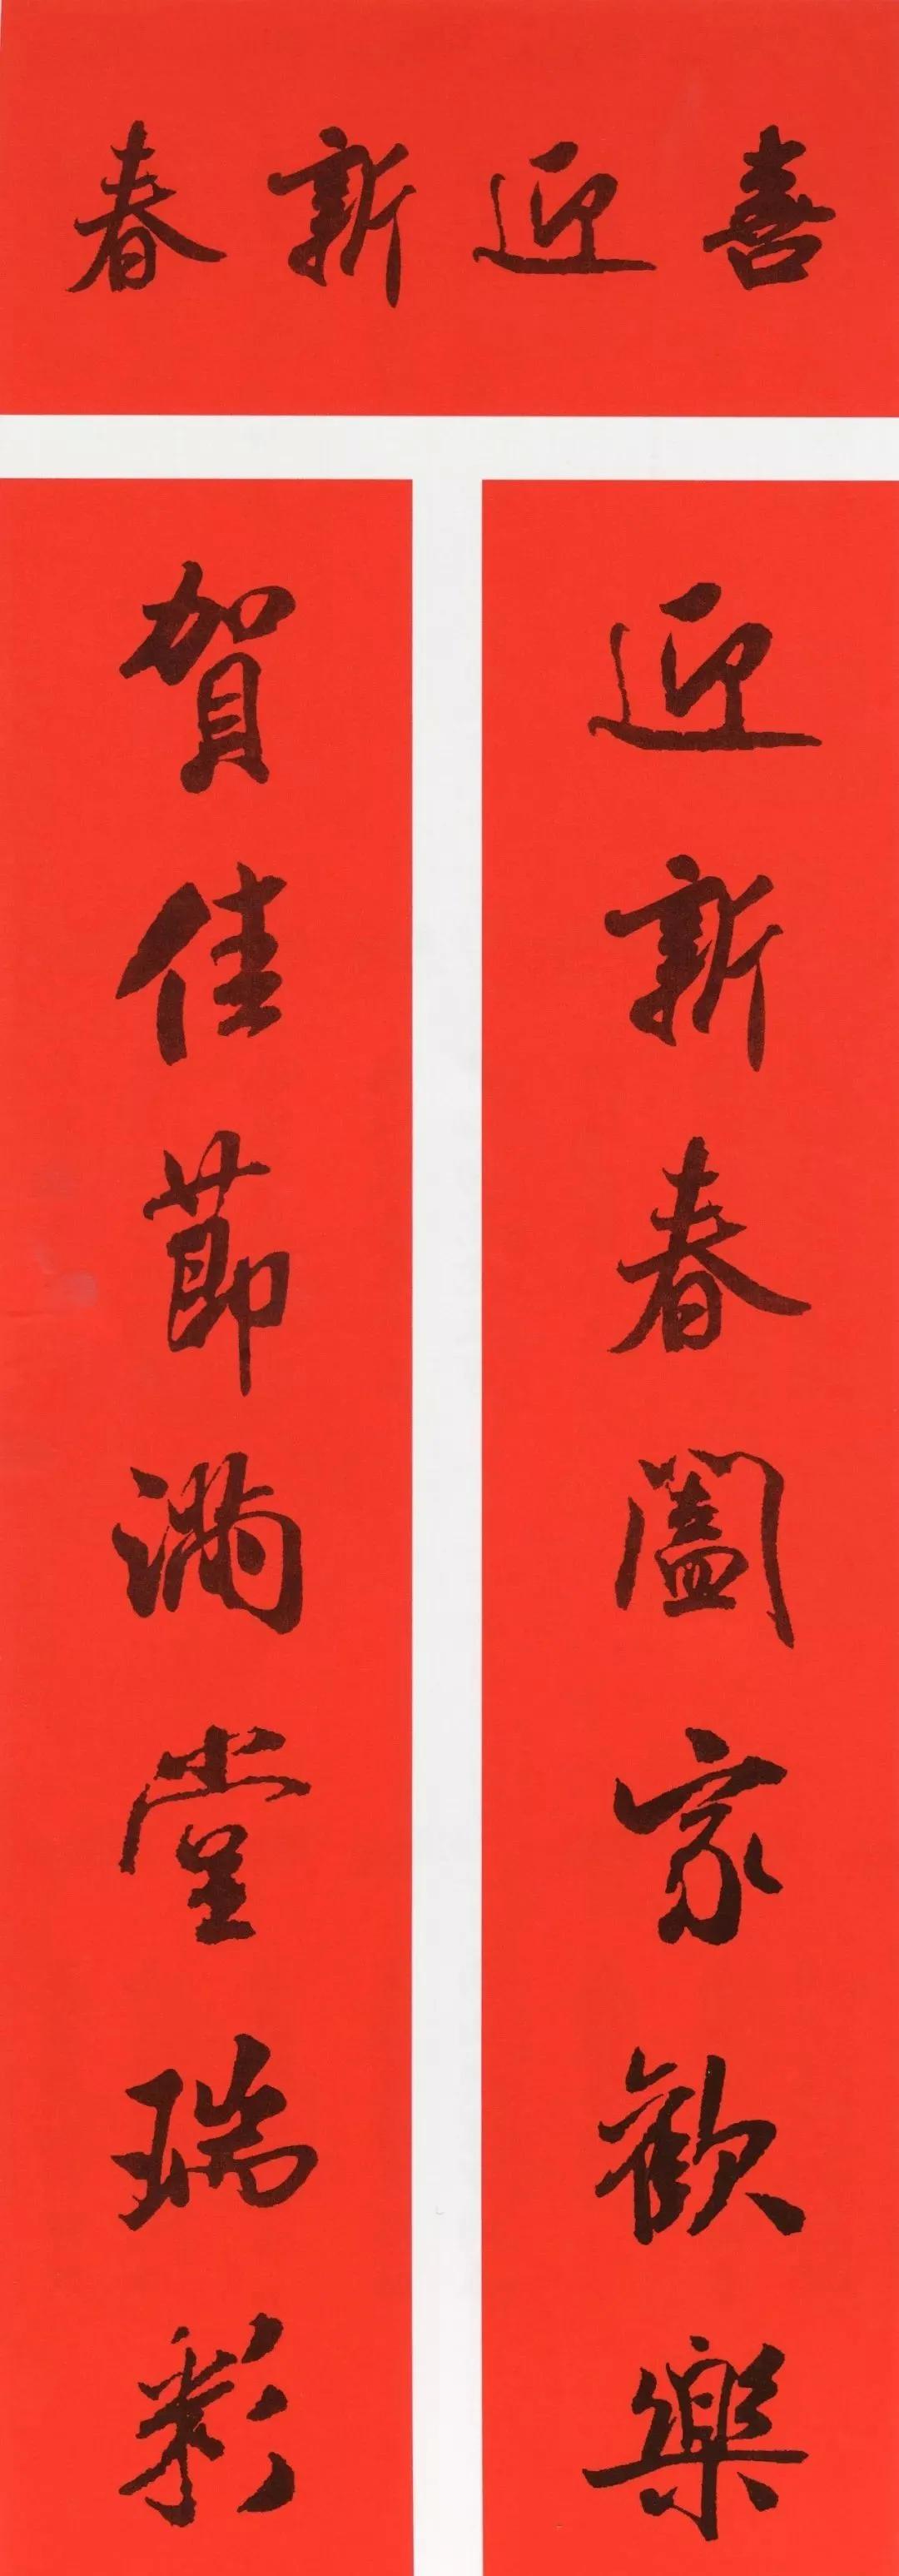 喜迎新春
迎新春闔家歡樂
賀佳節滿堂瑞彩